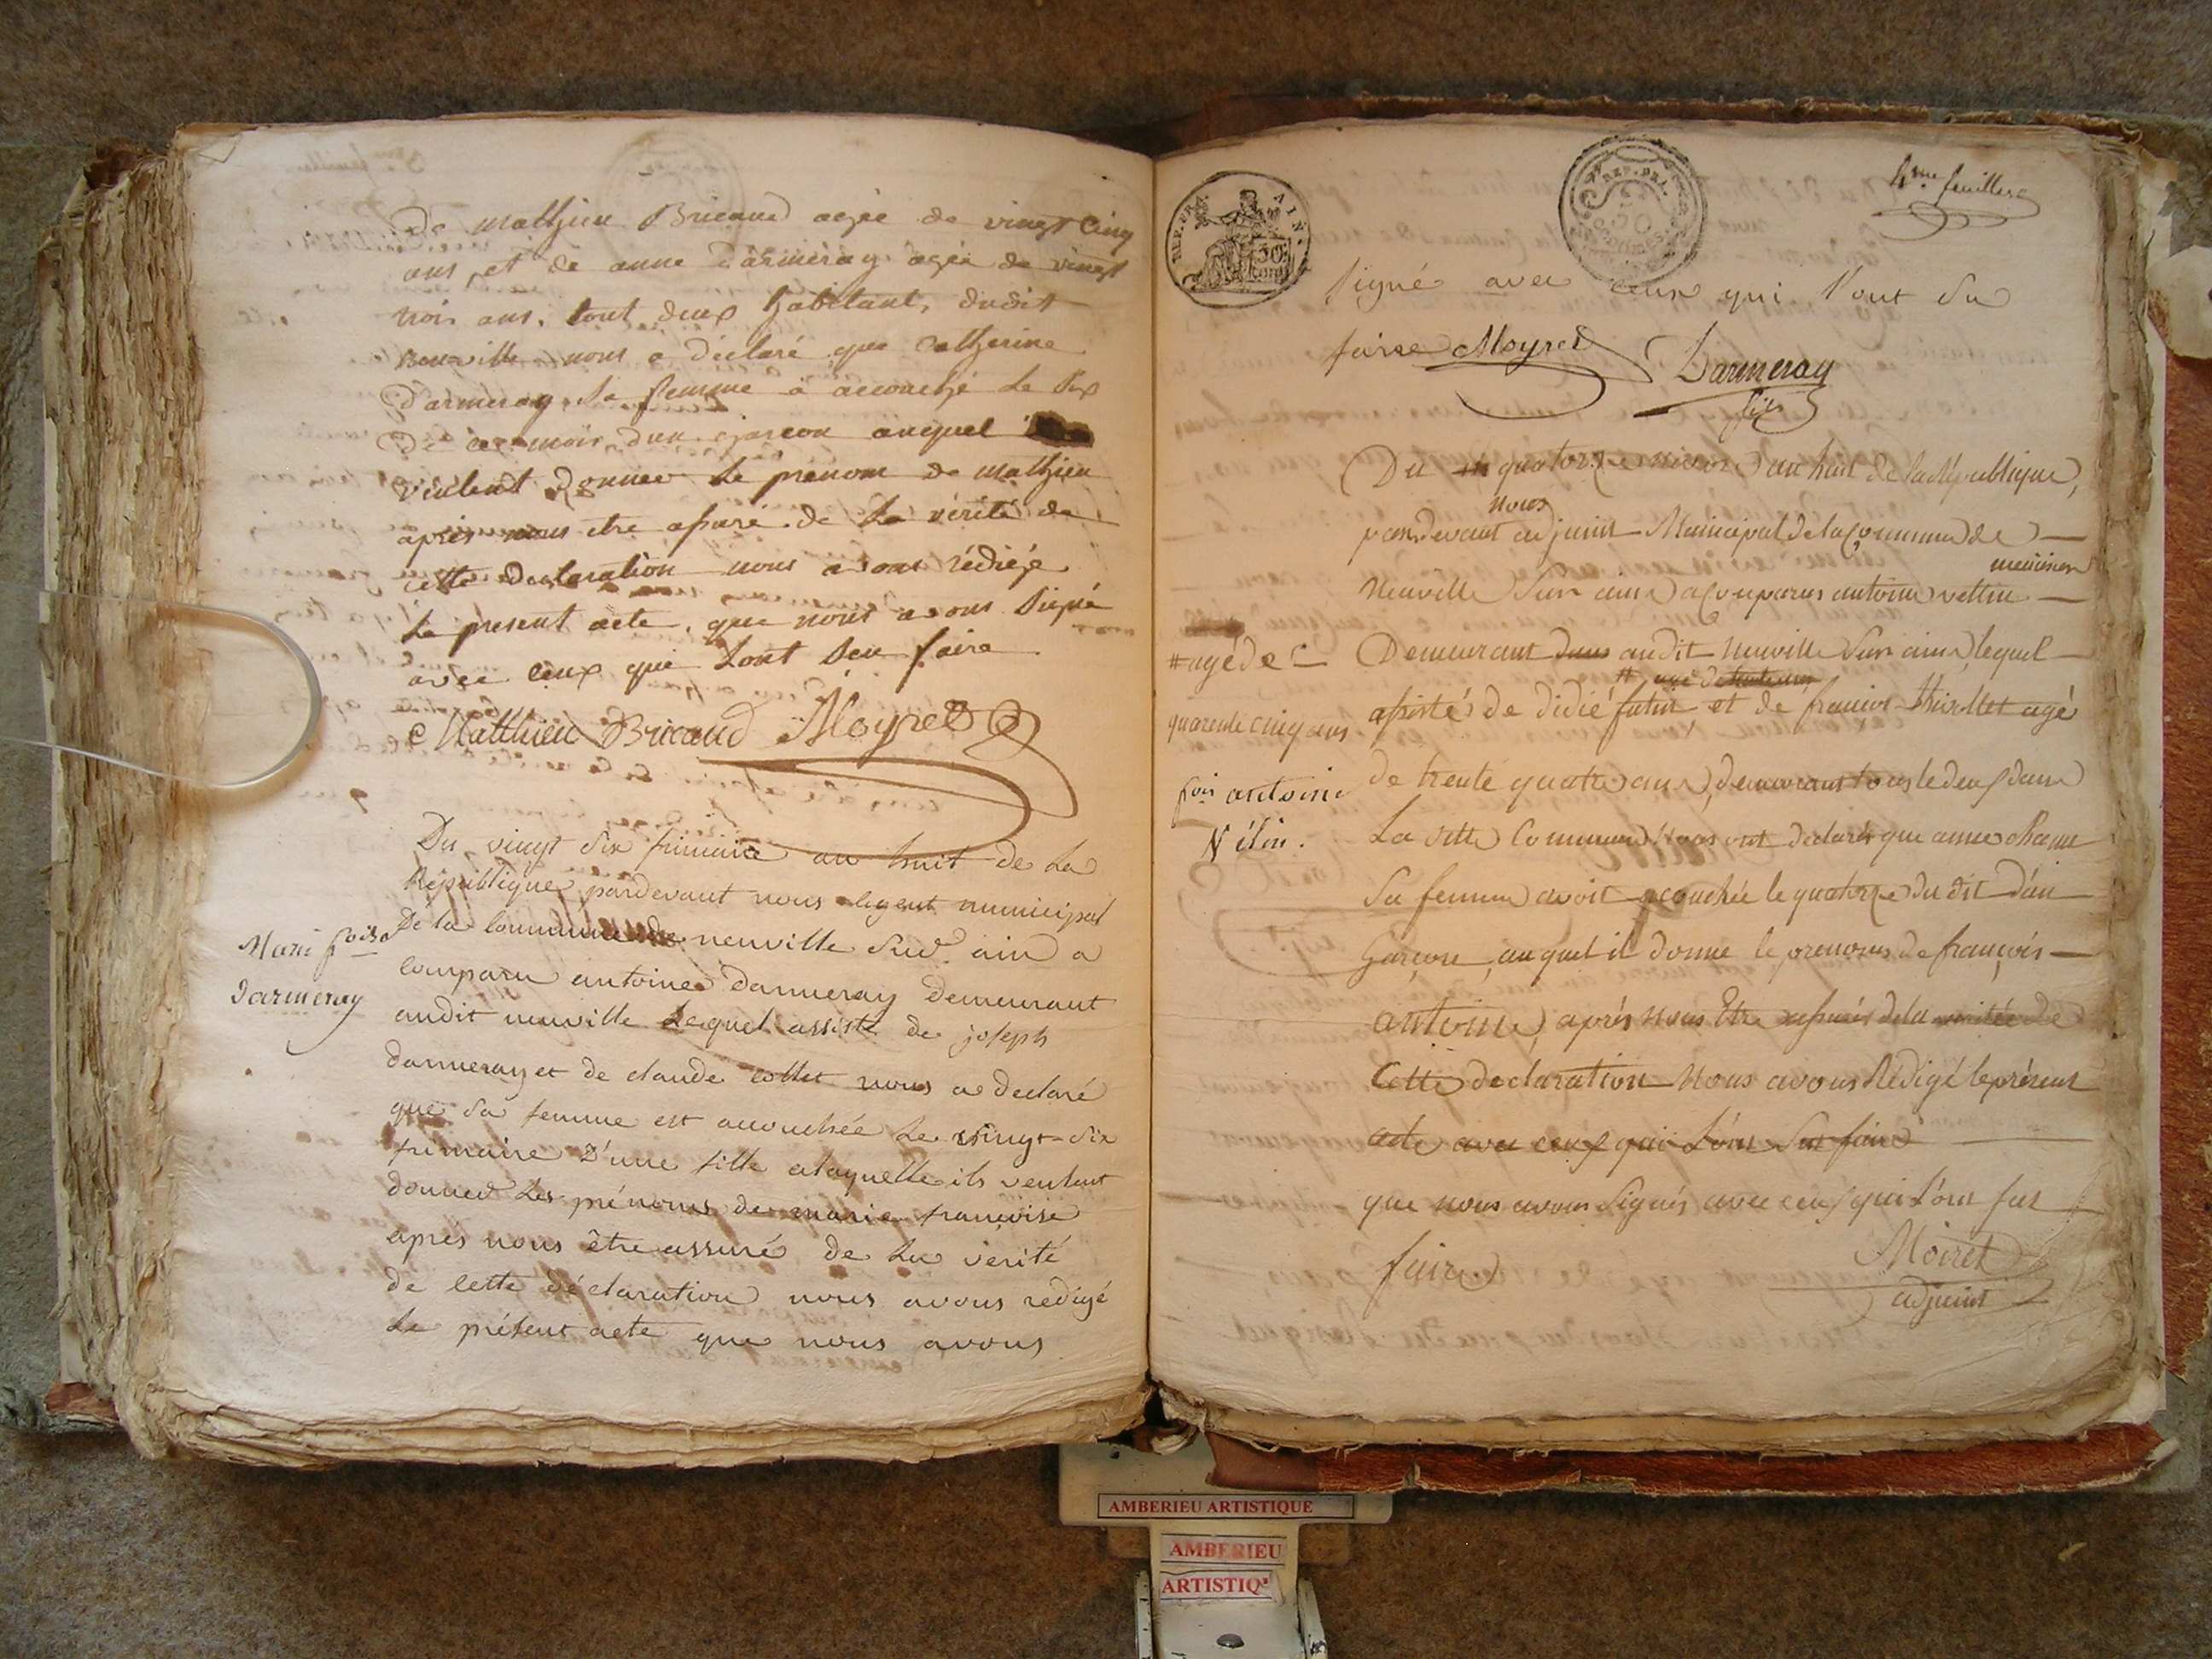 de mathieu Bricaud agée de vingt Cinq
ans, et de anne d'armeray agée de vingt
trois ans, tout deux habitant, dudit
neuville nous a déclaré que Catherine
d'armeray sa femme à accouché le six
de ce mois d'un garcon auquel
veulent donner le prenom de mathieu
après nous etre assuré de la vérité de
cette declaration nous avons rédigé
le present acte, que nous avons signé
avec ceux qui l'ont seu faire
Matthieu Bricaud Moyret
Du vingt six frimaire an huit de la
République pardevant nous agent municipal
De la commune de neuville sur ain a
comparu antoine darmeray demeurant
audit neuville lequel assisté de joseph
darmeray et de claude collet nous a declaré
que sa femme est accouchée le vingt-six
frimaire d'une fille a laquelle ils veulent
donner les prénoms de marie françoise
apres nous être assuré de la vérité
de cette déclaration nous avons redigé
le présent acte que nous avons
Marie foise
darmeray
4me feuillet
REP. FRA. AIN.
30 cent
REP. FRA.
50
CENTIMES
signé avec ceux qui l'ont su
faire Moyret Darmeray
fils
Du quatorze nivose an huit de la République,
nous
pardevant adjoint Municipal de la Commune de
meusnier
Neuville sur ain a Comparus antoine vettin
Demeurant dans audit neuville sur ain, lequel
# agé de
assisté de didié futin et de francois thivollet agé
de trente quatre ans, demeurant tous le deux dans
La ditte Commune Nous ont declarés que anne
sa femme avoit acouchée le quatorze du dit d'un
garçon, auquel il donne le prenoms de françois
antoine, aprés nous Etre assurés de la veritée de
Cette declaration Nous avons Rédigé le présent
acte avec ceux qui l'ons sus faire
que nous avons signés avec ceux qui l'ons sus
faire
Moiret
adjoint
# agé de
quarente cinq ans
fois antoine
Vétin.
AMBERIEU ARTISTIQUE
AMBERIEU
ARTISTIQ